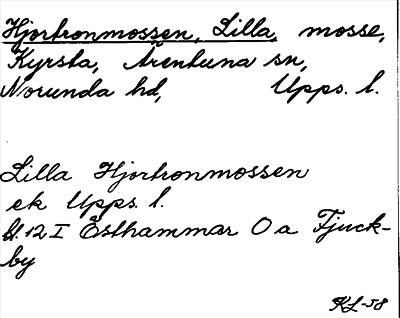 Hjortronmossen, Lilla, mosse,
Kyrsta, Ärentuna sn,
Norunda hd, Upps. l.
Lilla Hjortronmossen
ek Upps. l.
bl. 12 I Östhammar O a Fjuck-
by
KL-58